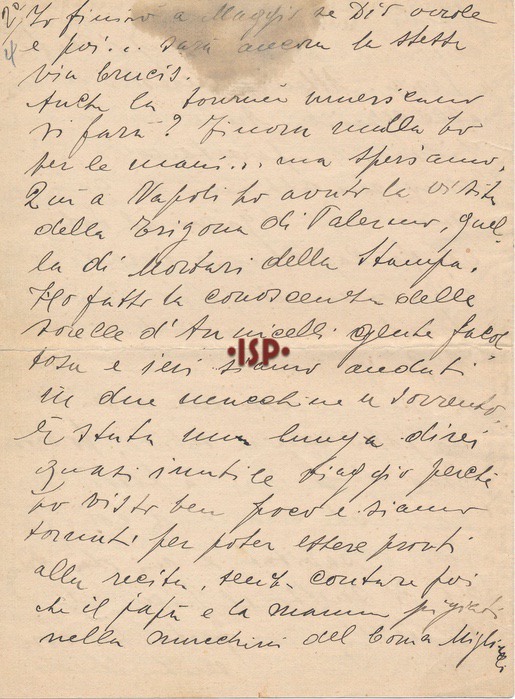 2º Io finirò a Maggio se Dio vuole
4
e poi... sarà ancora la stessa
via Crucis.
Anche la tournée americana
si farà? Finora nulla ho
per le mani... ma speriamo.
Qui a Napoli ho avuto la visita
della Trigona di Palermo, quel-
la di Mortari della Stampa.
Ho fatto la conoscenza delle
sorelle d'Annicelli gente facol
·ISP·
tosa e ieri siamo andati
in due macchine a Sorrento,
È stata una lunga direi
quasi inutile viaggio perchè
ho visto ben poco e siamo
tornati per poter essere pronti
alla recita, senza contare poi
che il papà e la mamma pigiati
nella macchina del Comm Migli